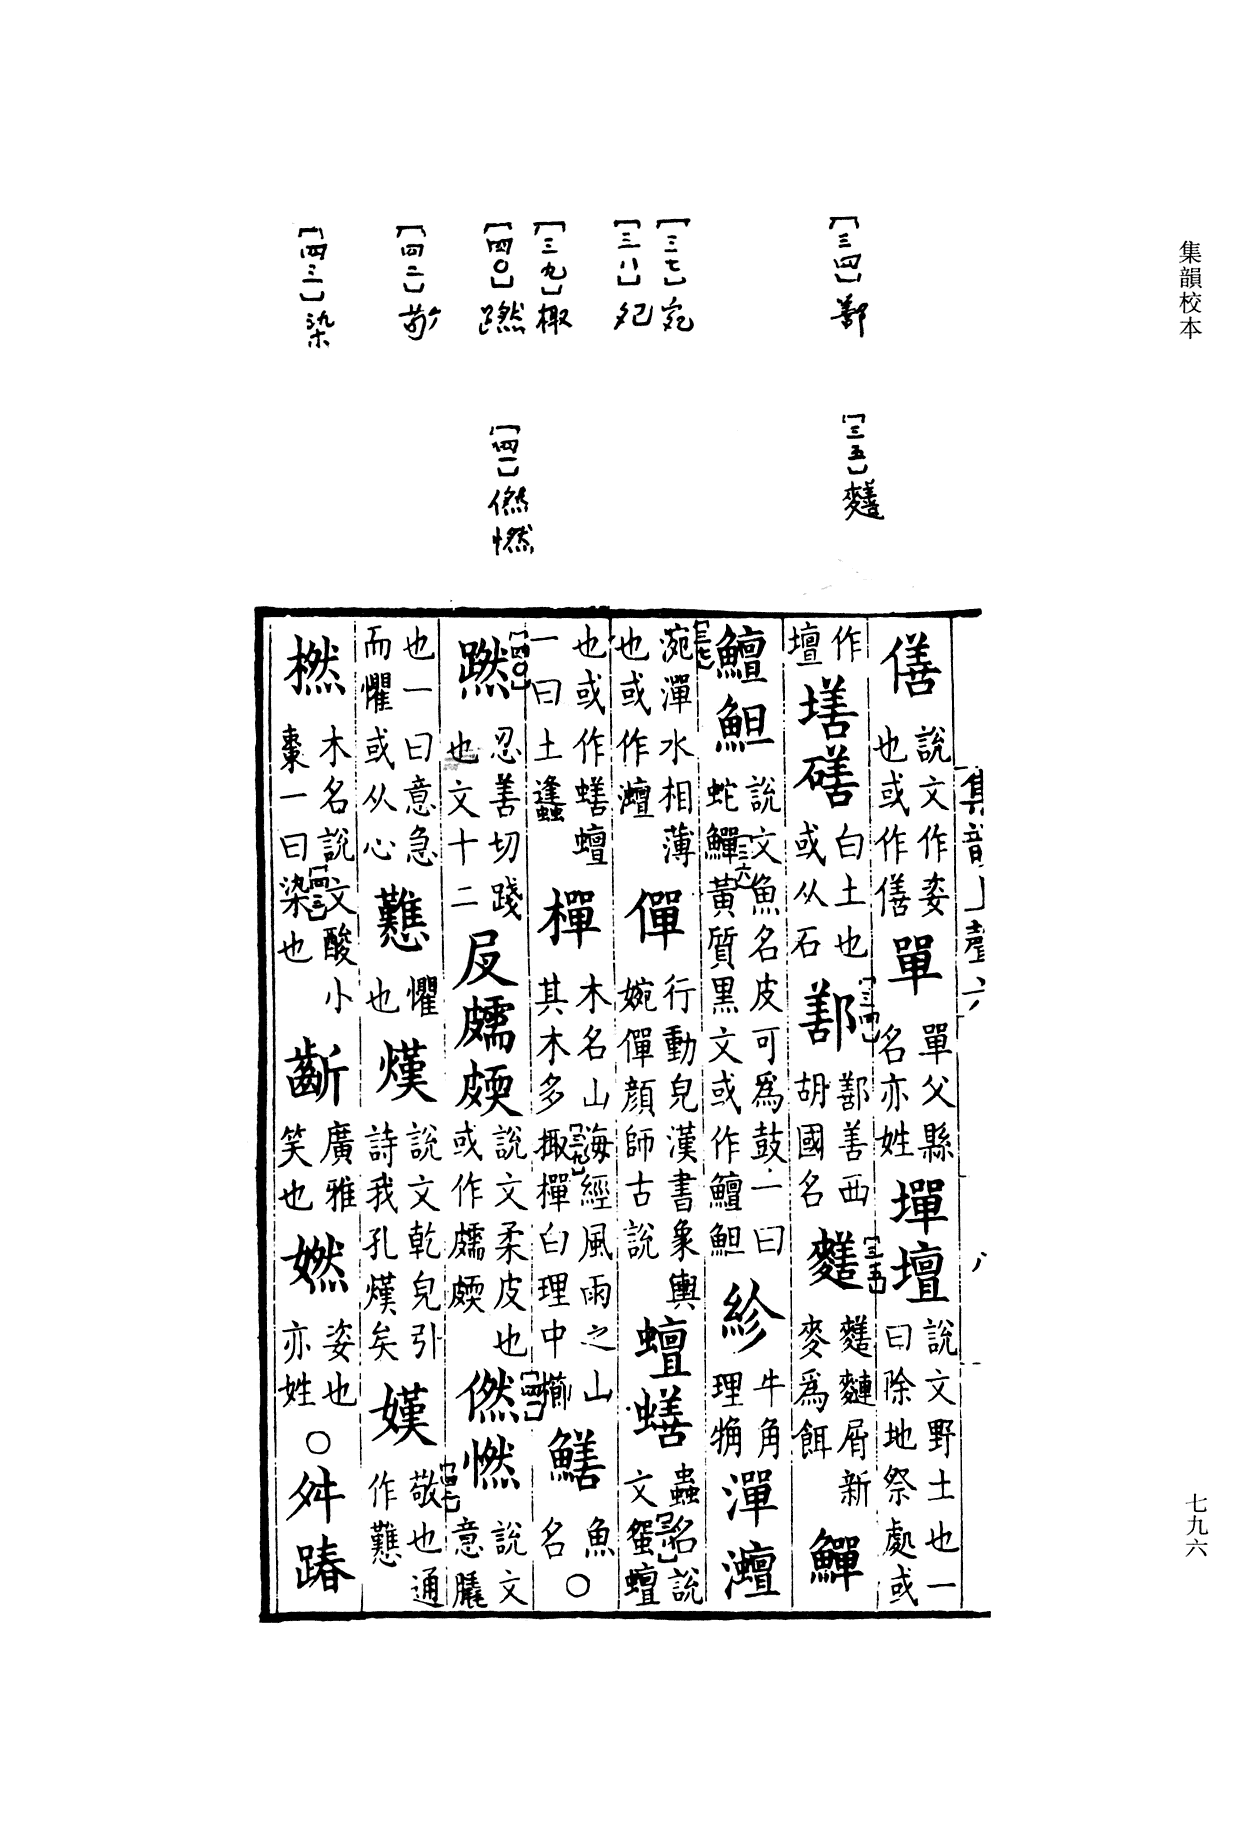 集韻校本
七九六
[三四]鄯
[三五]𪍶
[三七]宛
[三八]
[三九]棷
[四〇]蹨
[四一]僽
[四二]
[四三]染
集韻上聲六
僐說文作姿也或作僐單單父縣名亦姓墠壇說文野土也一曰除地祭處或
作壇墡磰白土也或从石鄯[三四]鄯善西胡國名𪍶[三五]麥爲餌屑新鱓
鱣䱇說文魚名皮可爲鼓一曰蛇鱓[三六]黃質黑文或作鱣䱇紾牛角理觕潬澶
[三七]涴潬水相薄也或作澶僤行動皃漢書象輿婉僤顏師古說蟺蟮蟲名說文[三八]蟺
也或作蟮蟺一曰土䗬樿木名山海經風雨之山[三九]其木多棷樿白理中櫛鱔魚名〇
蹨[四〇]忍善切踐也文十二㞋說文柔皮也或作[四一]戁說文意脃
也一曰意急而懼或从心戁懼也熯說文乾皃引詩我孔熯矣㜣[四二]敬也通作戁
橪木名說文酸小棗一曰染[四三]也齗廣雅笑也㜣姿也亦姓〇舛踳